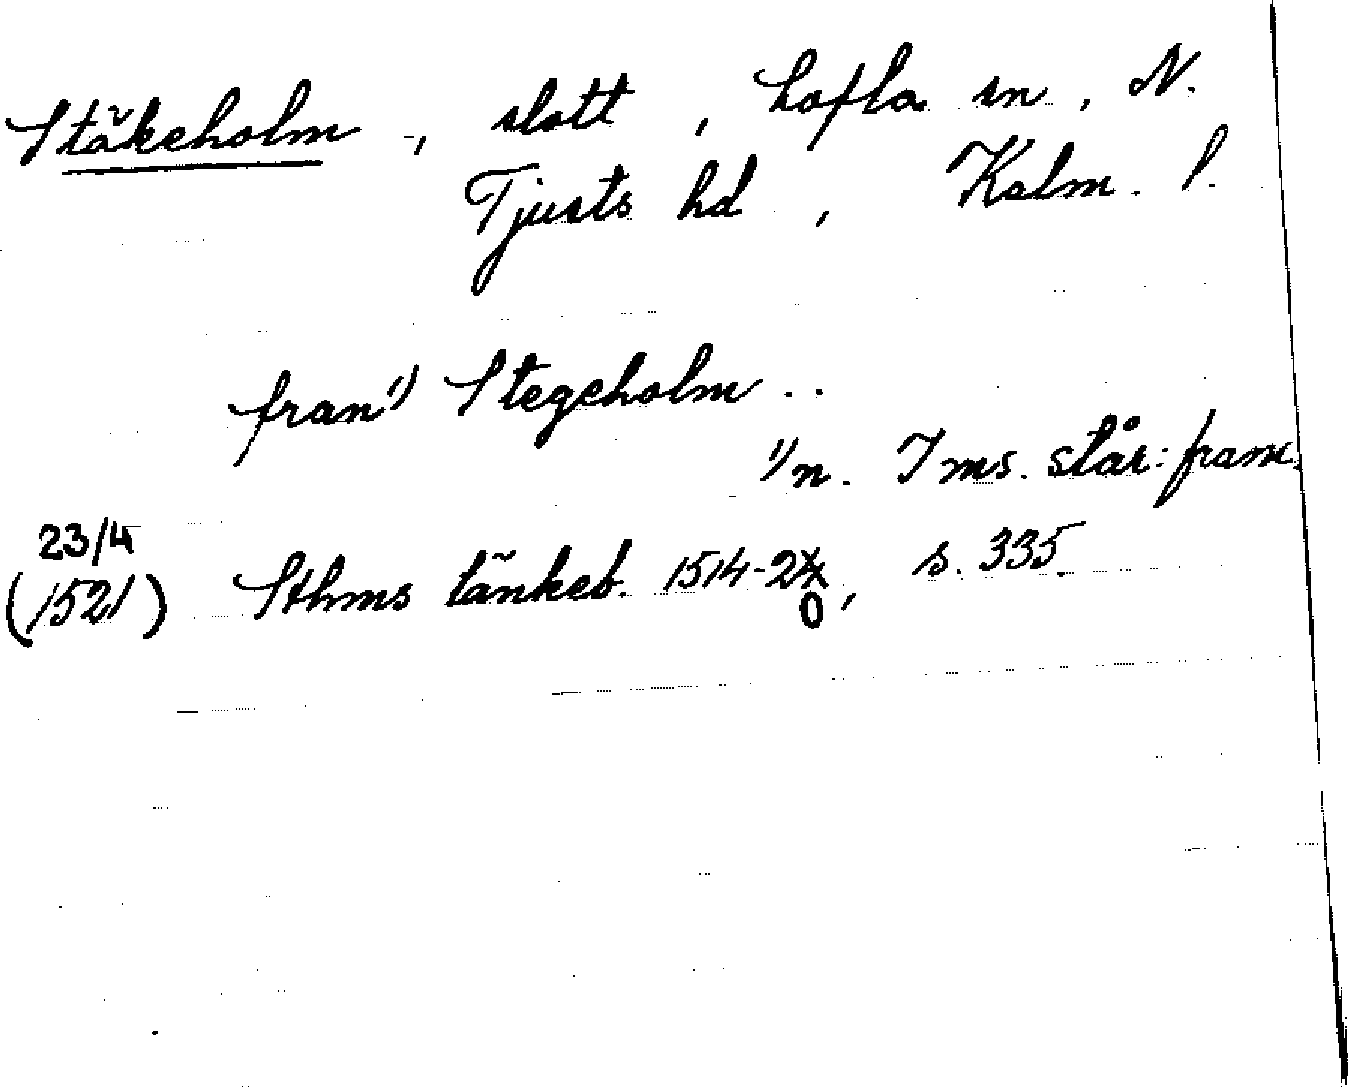 Stäkeholm, slott, Lofta sn, N.
Tjusts hd, Kalm. l.
fran¹⁾ Stegeholm ..
¹⁾n. I ms. står: fram.
23/4
(1521) Sthms tänkeb. 1514-20, s. 335